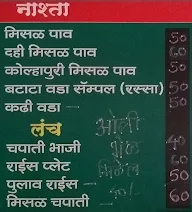 नाश्ता
मिसळ पाव 50
दही मिसळ पाव 60
कोल्हापुरी मिसळ पाव 50
बटाटा वडा सॅम्पल (रस्सा) 50
कढी वडा 50
लंच
ओली
भेळ
चपाती भाजी 40
राईस प्लेट 60
मिळेल
पुलाव राईस 50
मिसळ चपाती 60